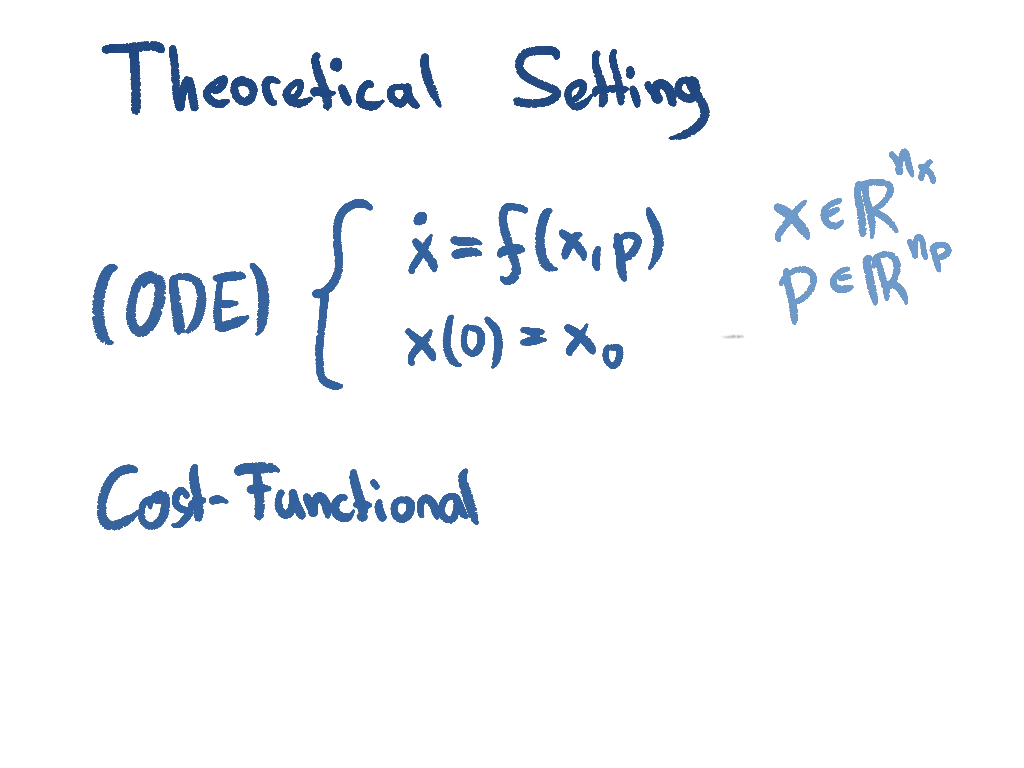 Theoretical Setting
(ODE) { ẋ = f(x, p)
x(0) = x₀
x ∈ ℝ^{n_x}
p ∈ ℝ^{n_p}
Cost-Functional